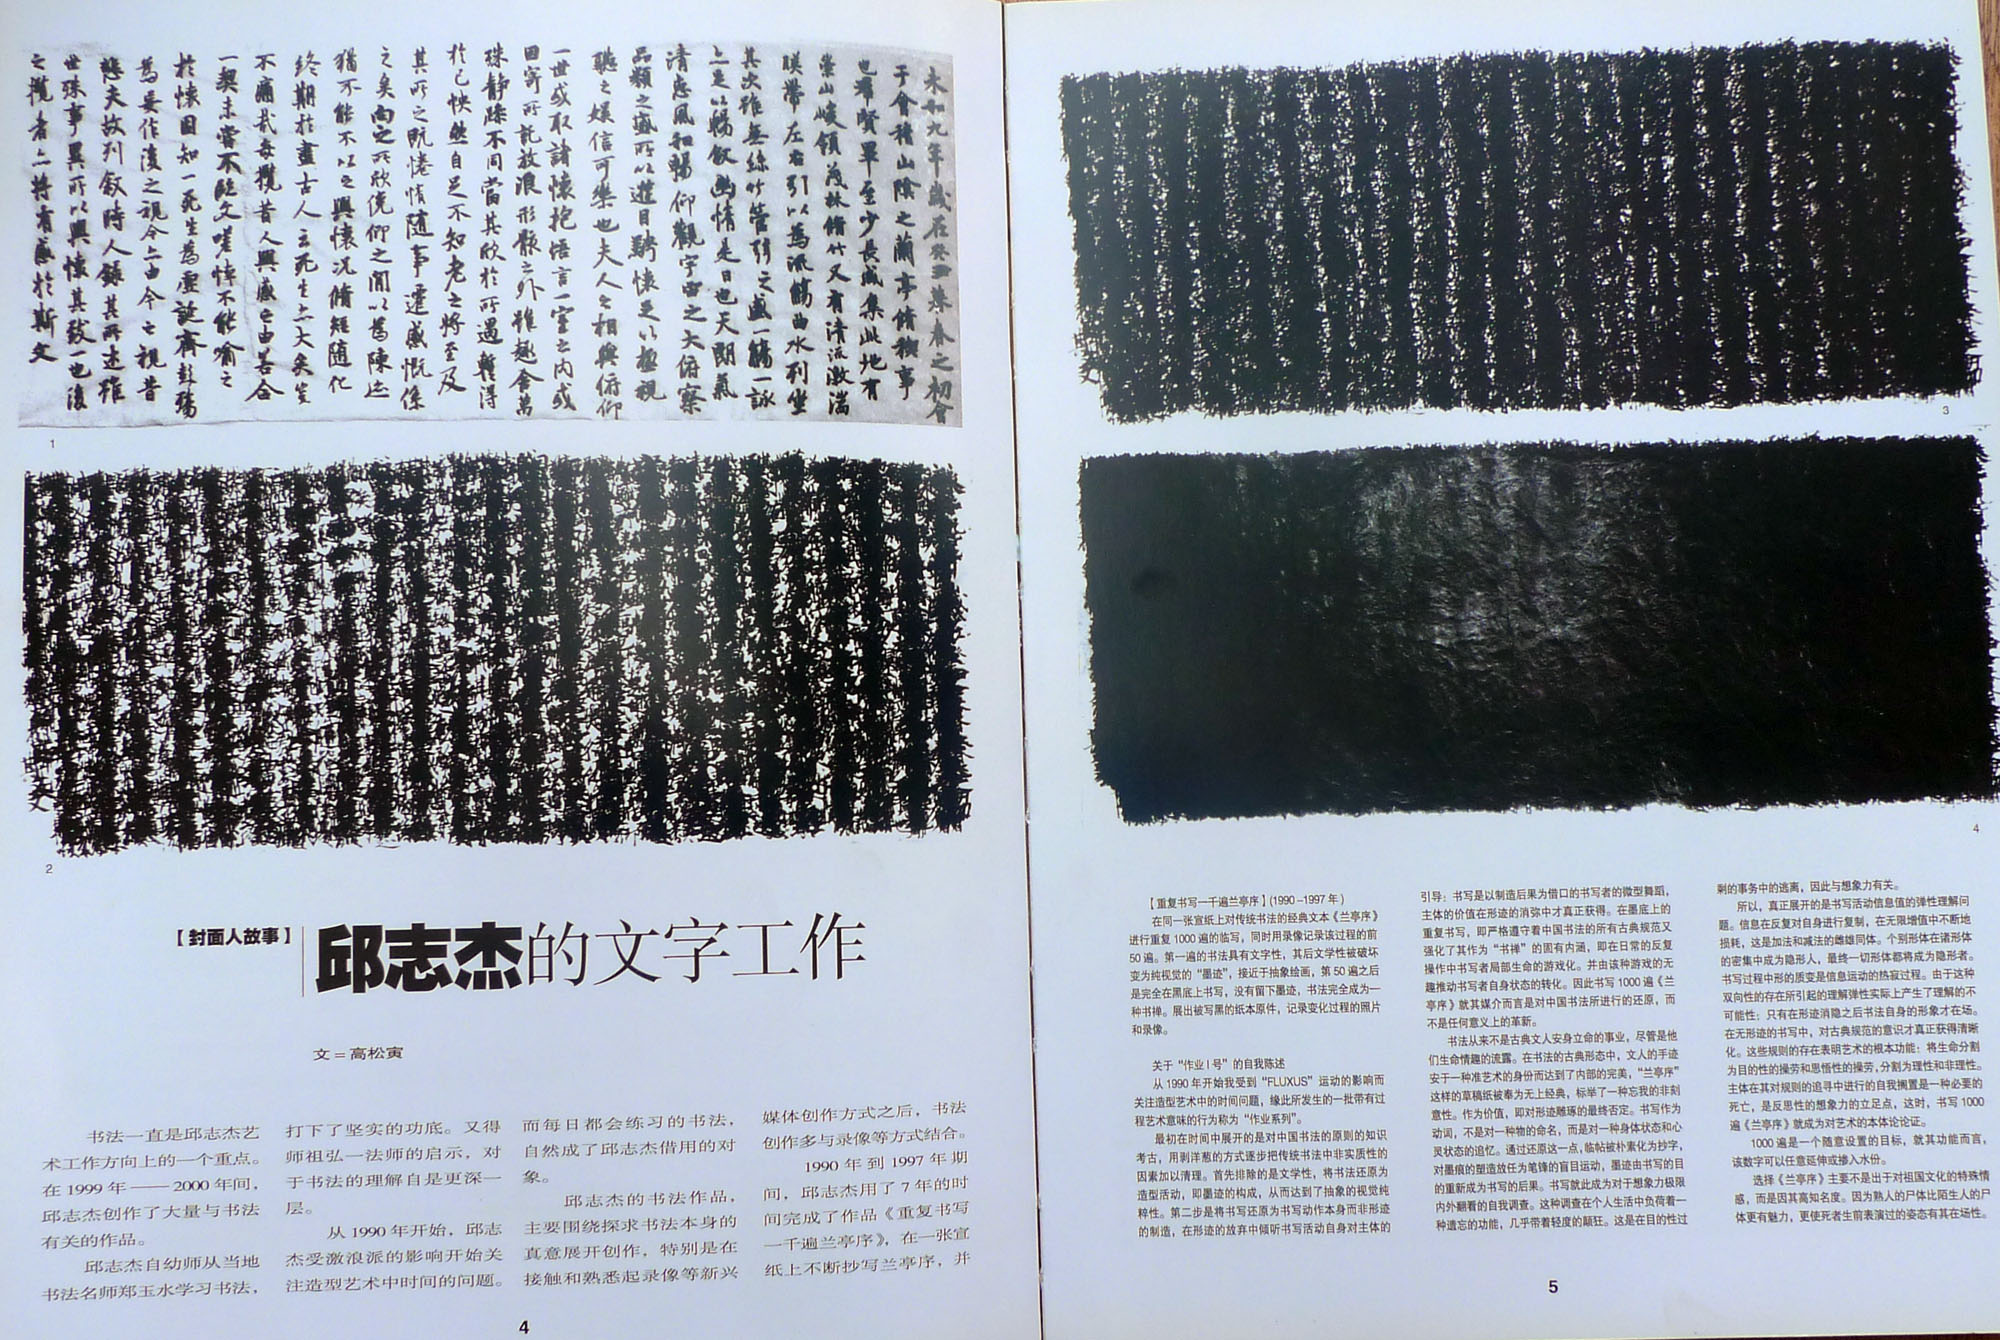 永和九年歲在癸丑暮春之初會
于會稽山陰之蘭亭脩稧事
也羣賢畢至少長咸集此地有
崇山峻領茂林脩竹又有清流激湍
暎帶左右引以為流觴曲水列坐
其次雖無絲竹管弦之盛一觴一詠
亦足以暢叙幽情是日也天朗氣
清惠風和暢仰觀宇宙之大俯察
品類之盛所以遊目騁懷足以極視
聽之娛信可樂也夫人之相與俯仰
一世或取諸懷抱悟言一室之內或
因寄所託放浪形骸之外雖趣舍萬
殊靜躁不同當其欣於所遇暫得
於己怏然自足不知老之將至及
其所之既惓情隨事遷感慨係
之矣向之所欣俛仰之間以為陳迹
猶不能不以之興懷況脩短隨化
終期於盡古人云死生亦大矣豈
不痛哉每攬昔人興感之由若合
一契未嘗不臨文嗟悼不能喻之
於懷固知一死生為虛誕齊彭殤
為妄作後之視今亦由今之視昔
悲夫故列叙時人錄其所述雖
世殊事異所以興懷其致一也後
之攬者亦將有感於斯文
1
文
2
【封面人故事】
邱志杰的文字工作
文=高松寅
书法一直是邱志杰艺
术工作方向上的一个重点。
在 1999 年——2000 年间，
邱志杰创作了大量与书法
有关的作品。
邱志杰自幼师从当地
书法名师郑玉水学习书法，
打下了坚实的功底。又得
师祖弘一法师的启示，对
于书法的理解自是更深一
层。
从 1990 年开始，邱志
杰受激浪派的影响开始关
注造型艺术中时间的问题。
而每日都会练习的书法，
自然成了邱志杰借用的对
象。
邱志杰的书法作品，
主要围绕探求书法本身的
真意展开创作，特别是在
接触和熟悉起录像等新兴
媒体创作方式之后，书法
创作多与录像等方式结合。
1990 年到 1997 年期
间，邱志杰用了 7 年的时
间完成了作品《重复书写
一千遍兰亭序》，在一张宣
纸上不断抄写兰亭序，并
4
文
3
4
【重复书写一千遍兰亭序】(1990-1997 年)
在同一张宣纸上对传统书法的经典文本《兰亭序》
进行重复 1000 遍的临写，同时用录像记录该过程的前
50 遍。第一遍的书法具有文字性，其后文学性被破坏
变为纯视觉的“墨迹”，接近于抽象绘画，第 50 遍之后
是完全在黑底上书写，没有留下墨迹，书法完全成为一
种书禅。展出被写黑的纸本原件，记录变化过程的照片
和录像。
关于“作业 I 号”的自我陈述
从 1990 年开始我受到“FLUXUS”运动的影响而
关注造型艺术中的时间问题，缘此所发生的一批带有过
程艺术意味的行为称为“作业系列”。
最初在时间中展开的是对中国书法的原则的知识
考古，用剥洋葱的方式逐步把传统书法中非实质性的
因素加以清理。首先排除的是文学性，将书法还原为
造型活动，即墨迹的构成，从而达到了抽象的视觉纯
粹性。第二步是将书写还原为书写动作本身而非形迹
的制造，在形迹的放弃中倾听书写活动自身对主体的
引导：书写是以制造后果为借口的书写者的微型舞蹈，
主体的价值在形迹的消弥中才真正获得。在墨底上的
重复书写，即严格遵守着中国书法的所有古典规范又
强化了其作为“书禅”的固有内涵，即在日常的反复
操作中书写者局部生命的游戏化。并由该种游戏的无
趣推动书写者自身状态的转化。因此书写 1000 遍《兰
亭序》就其媒介而言是对中国书法所进行的还原，而
不是任何意义上的革新。
书法从来不是古典文人安身立命的事业，尽管是他
们生命情趣的流露。在书法的古典形态中，文人的手迹
安于一种准艺术的身份而达到了内部的完美，“兰亭序”
这样的草稿纸被奉为无上经典，标举了一种忘我的非刻
意性。作为价值，即对形迹雕琢的最终否定。书写作为
动词，不是对一种物的命名，而是对一种身体状态和心
灵状态的追忆。通过还原这一点，临帖被朴素化为抄字，
对墨痕的塑造放任为笔锋的盲目运动，墨迹由书写的目
的重新成为书写的后果。书写就此成为对于想象力极限
内外翻看的自我调查。这种调查在个人生活中负荷着一
种遗忘的功能，几乎带着轻度的颠狂。这是在目的性过
剩的事务中的逃离，因此与想象力有关。
所以，真正展开的是书写活动信息值的弹性理解问
题。信息在反复对自身进行复制，在无限增值中不断地
损耗，这是加法和减法的雌雄同体。个别形体在诸形体
的密集中成为隐形人，最终一切形体都将成为隐形者。
书写过程中形的质变是信息运动的热寂过程。由于这种
双向性的存在所引起的理解弹性实际上产生了理解的不
可能性；只有在形迹消隐之后书法自身的形象才在场。
在无形迹的书写中，对古典规范的意识才真正获得清晰
化。这些规则的存在表明艺术的根本功能：将生命分割
为目的性的操劳和思悟性的操劳，分割为理性和非理性。
主体在其对规则的追寻中进行的自我搁置是一种必要的
死亡，是反思性的想象力的立足点，这时，书写 1000
遍《兰亭序》就成为对艺术的本体论论证。
1000 遍是一个随意设置的目标，就其功能而言，
该数字可以任意延伸或掺入水份。
选择《兰亭序》主要不是出于对祖国文化的特殊情
感，而是因其高知名度。因为熟人的尸体比陌生人的尸
体更有魅力，更使死者生前表演过的姿态有其在场性。
5